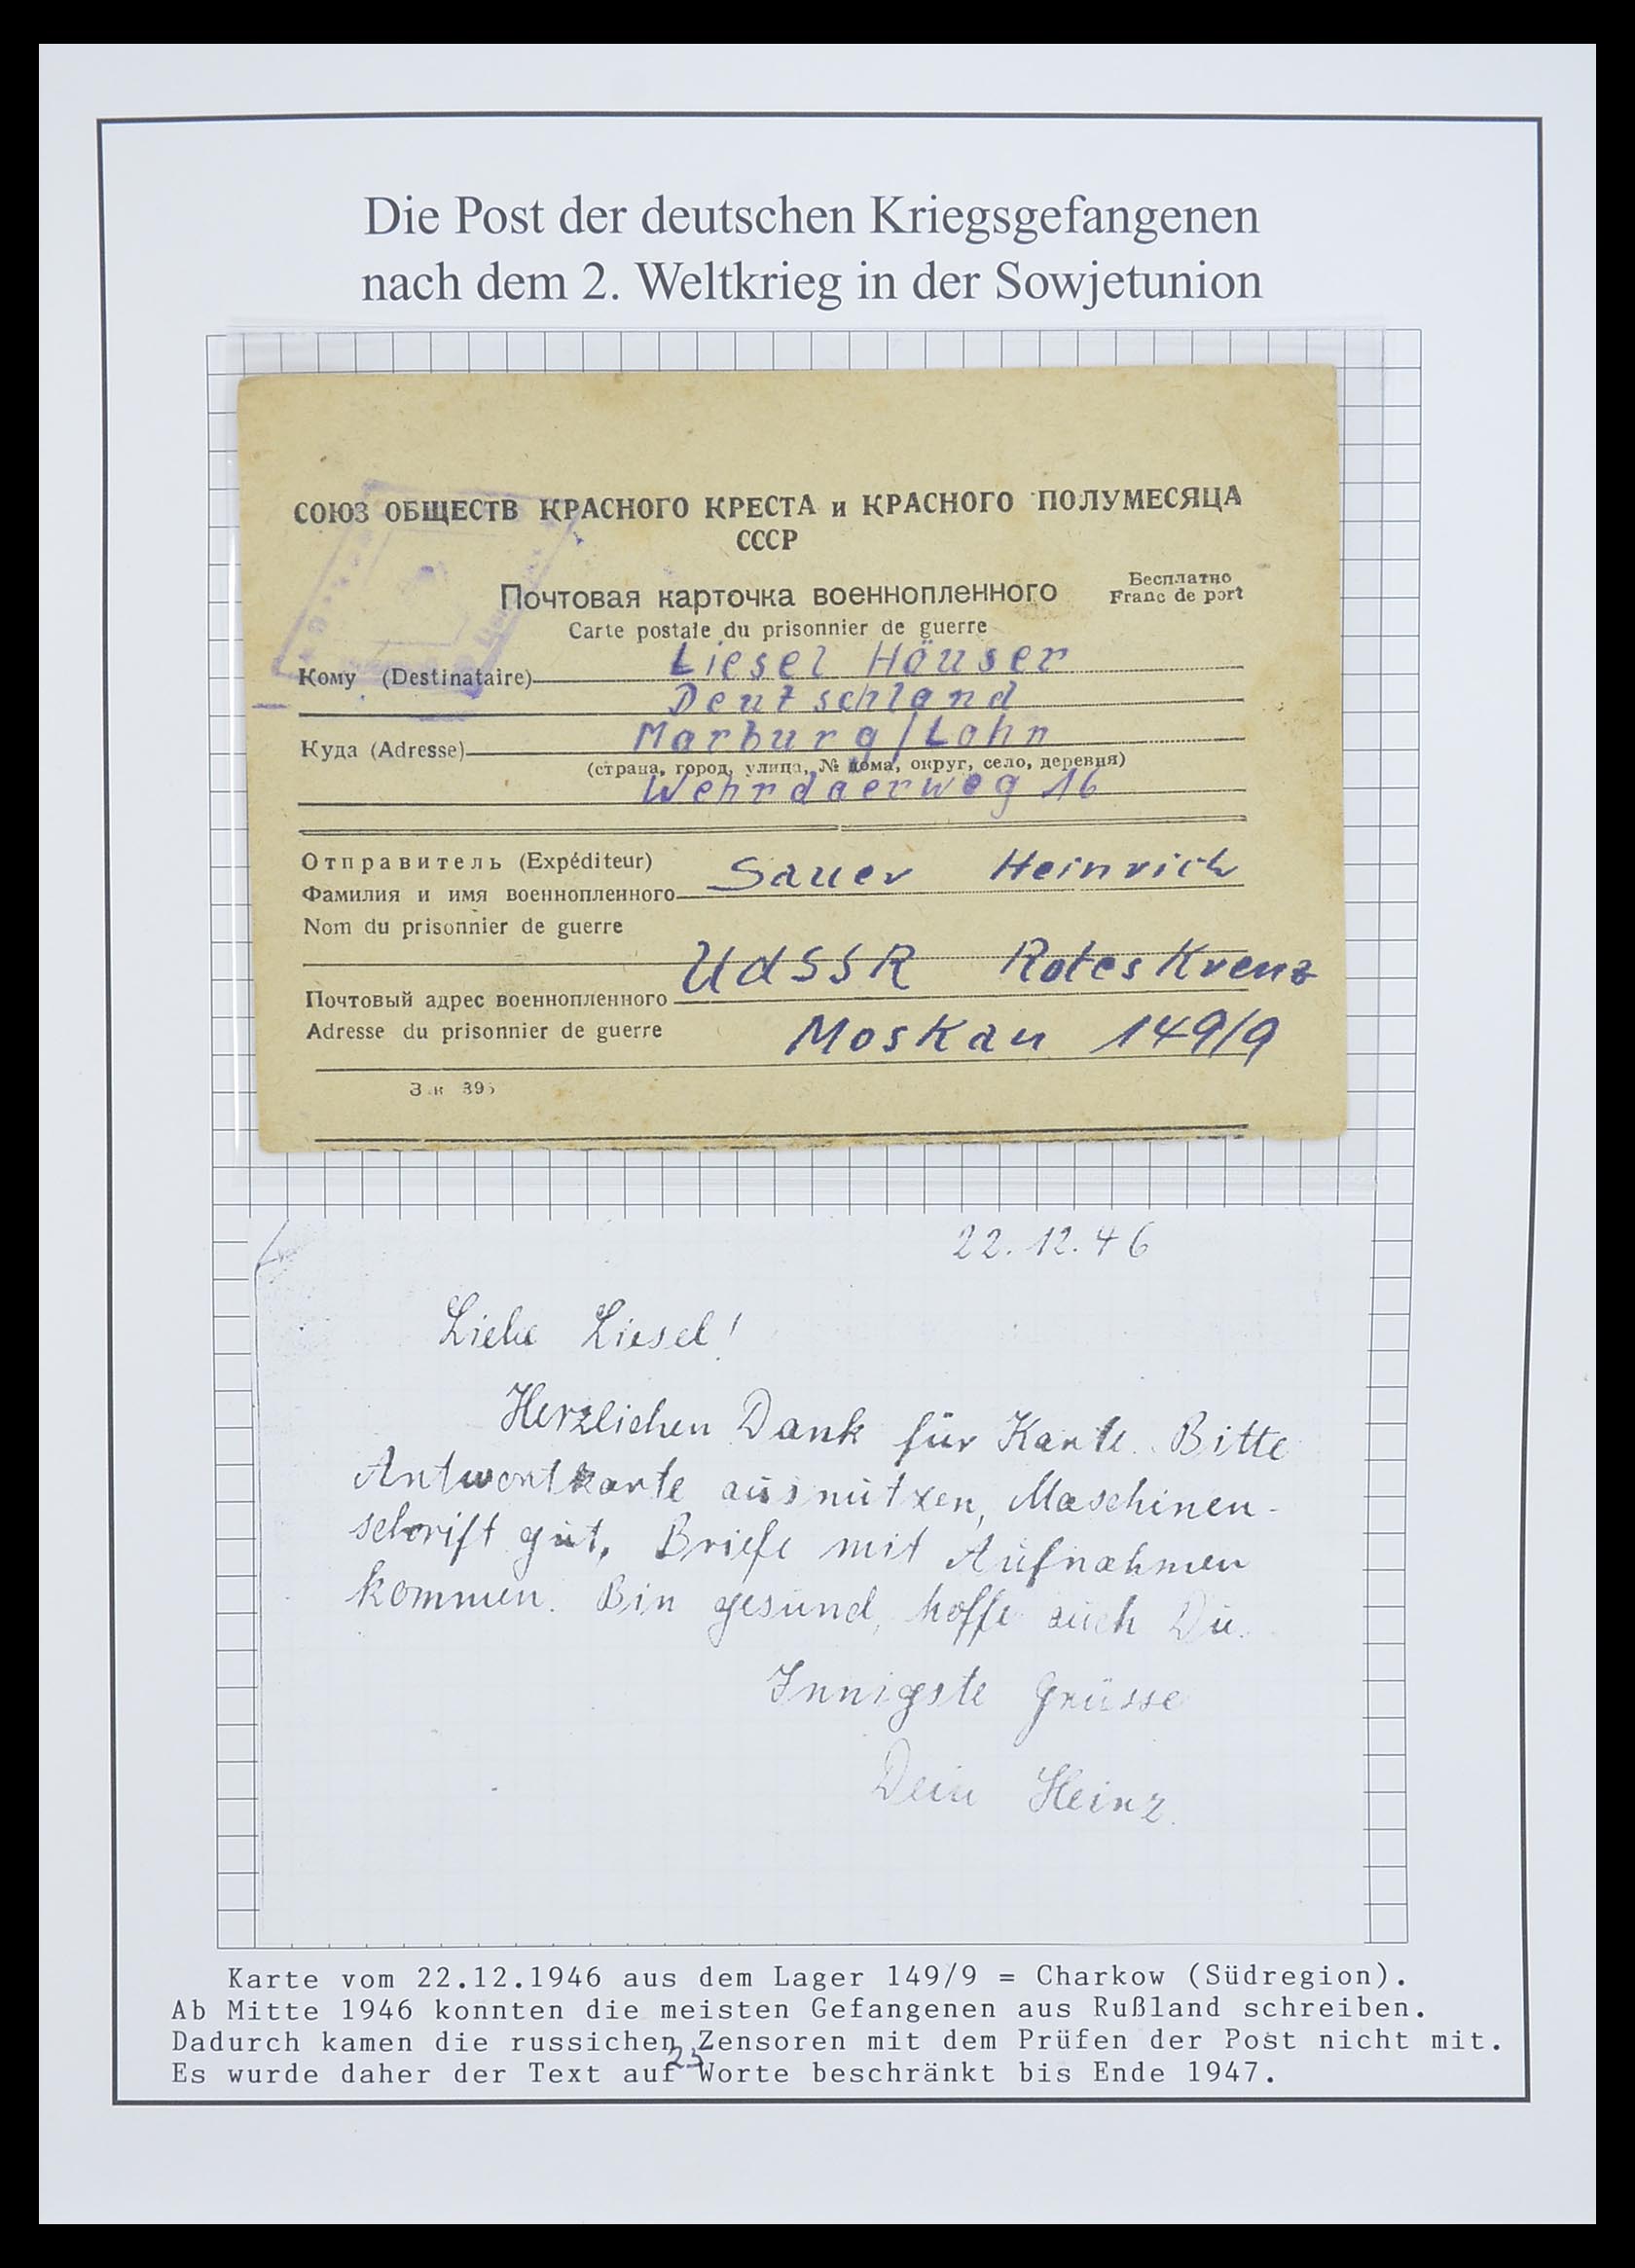 Die Post der deutschen Kriegsgefangenen
nach dem 2. Weltkrieg in der Sowjetunion
СОЮЗ ОБЩЕСТВ КРАСНОГО КРЕСТА и КРАСНОГО ПОЛУМЕСЯЦА
СССР
Почтовая карточка военнопленного
Бесплатно
Franc de port
Carte postale du prisonnier de guerre
Кому (Destinataire) Liesel Häuser
Deutschland
Куда (Adresse) Marburg/Lahn
(страна, город, улица, № дома, округ, село, деревня)
Wehrdaerweg 16
Отправитель (Expéditeur)
Фамилия и имя военнопленного Sauer Heinrich
Nom du prisonnier de guerre
UdSSR Rotes Kreuz
Почтовый адрес военнопленного
Adresse du prisonnier de guerre Moskau 149/9
22.12.46
Liebe Liesel!
Herzlichen Dank für Karte. Bitte
Antwortkarte ausnützen, Maschinen-
schrift gut, Briefe mit Aufnahmen
kommen. Bin gesund, hoffe auch Du.
Innigste Grüsse
Dein Heinz.
Karte vom 22.12.1946 aus dem Lager 149/9 = Charkow (Südregion).
Ab Mitte 1946 konnten die meisten Gefangenen aus Rußland schreiben.
Dadurch kamen die russichen Zensoren mit dem Prüfen der Post nicht mit.
Es wurde daher der Text auf 25 Worte beschränkt bis Ende 1947.